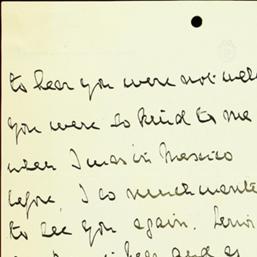 to hear you were not well
you were so kind to me
when I was in Mexico
before. I so much wante
to see you again.